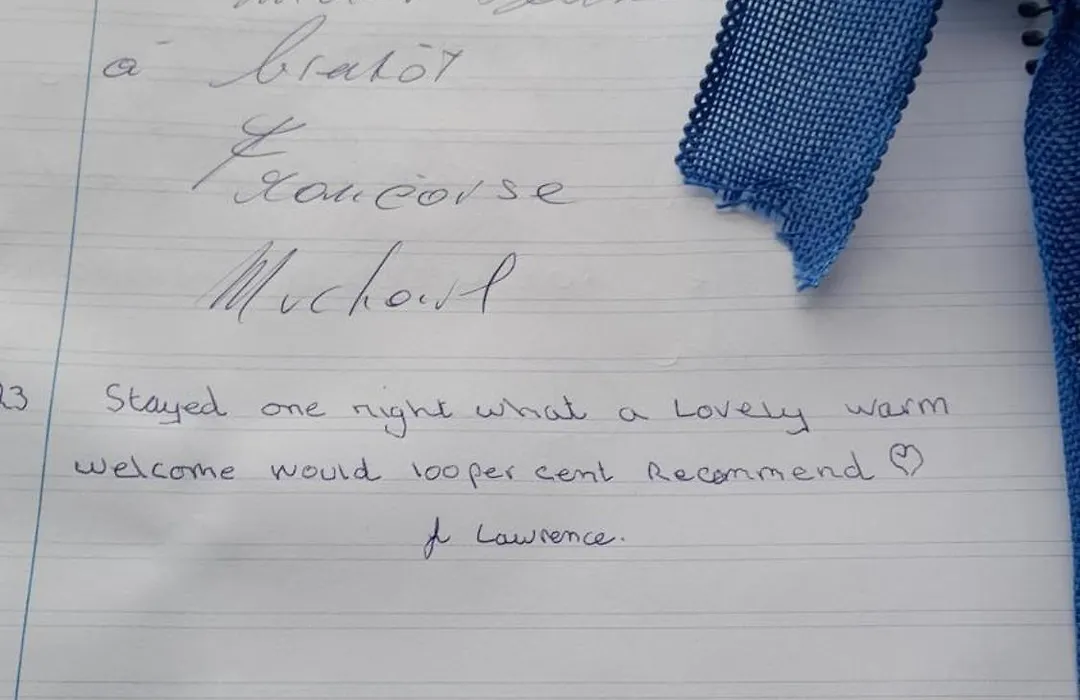 à bientôt
Françoise
23 Stayed one night what a Lovely warm
welcome would 100 per cent Recommend ♡
J Lawrence.